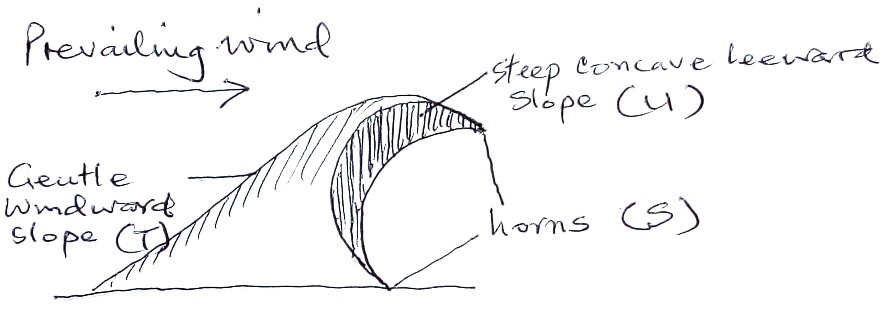 Prevailing wind
steep concave leeward
slope (U)
Gentle
windward
slope (T)
horns (S)